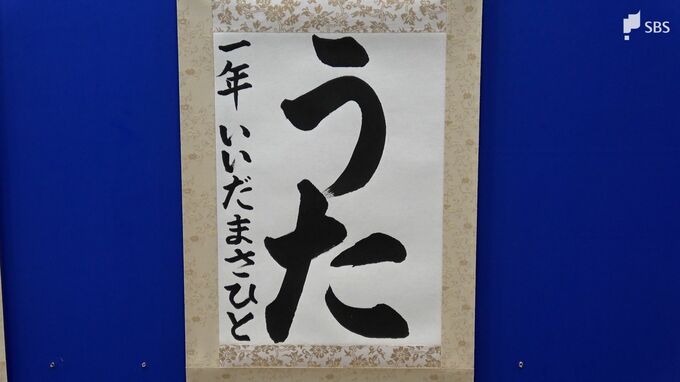 うた
一年 いいだまさひと
SBS